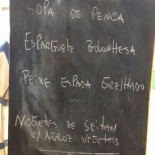 SOPA DE PENCA
ESPARGUETE BOLONHESA
PEIXE ESPADA GRELHADO
NUGETES DE SEITAN
C/ ARROZ VEGETAIS